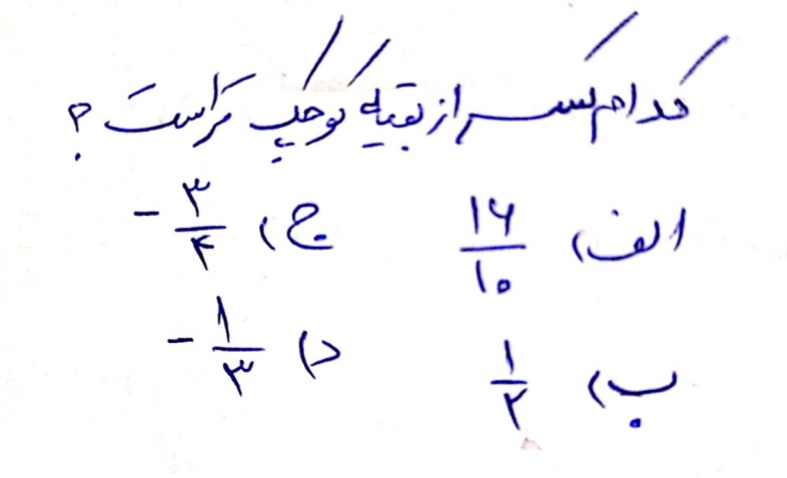 کدام کسر از بقیه کوچک تر است ؟
الف) ۱۶/۱۰ ج) -۳/۴
ب) ۱/۲ د) -۱/۳